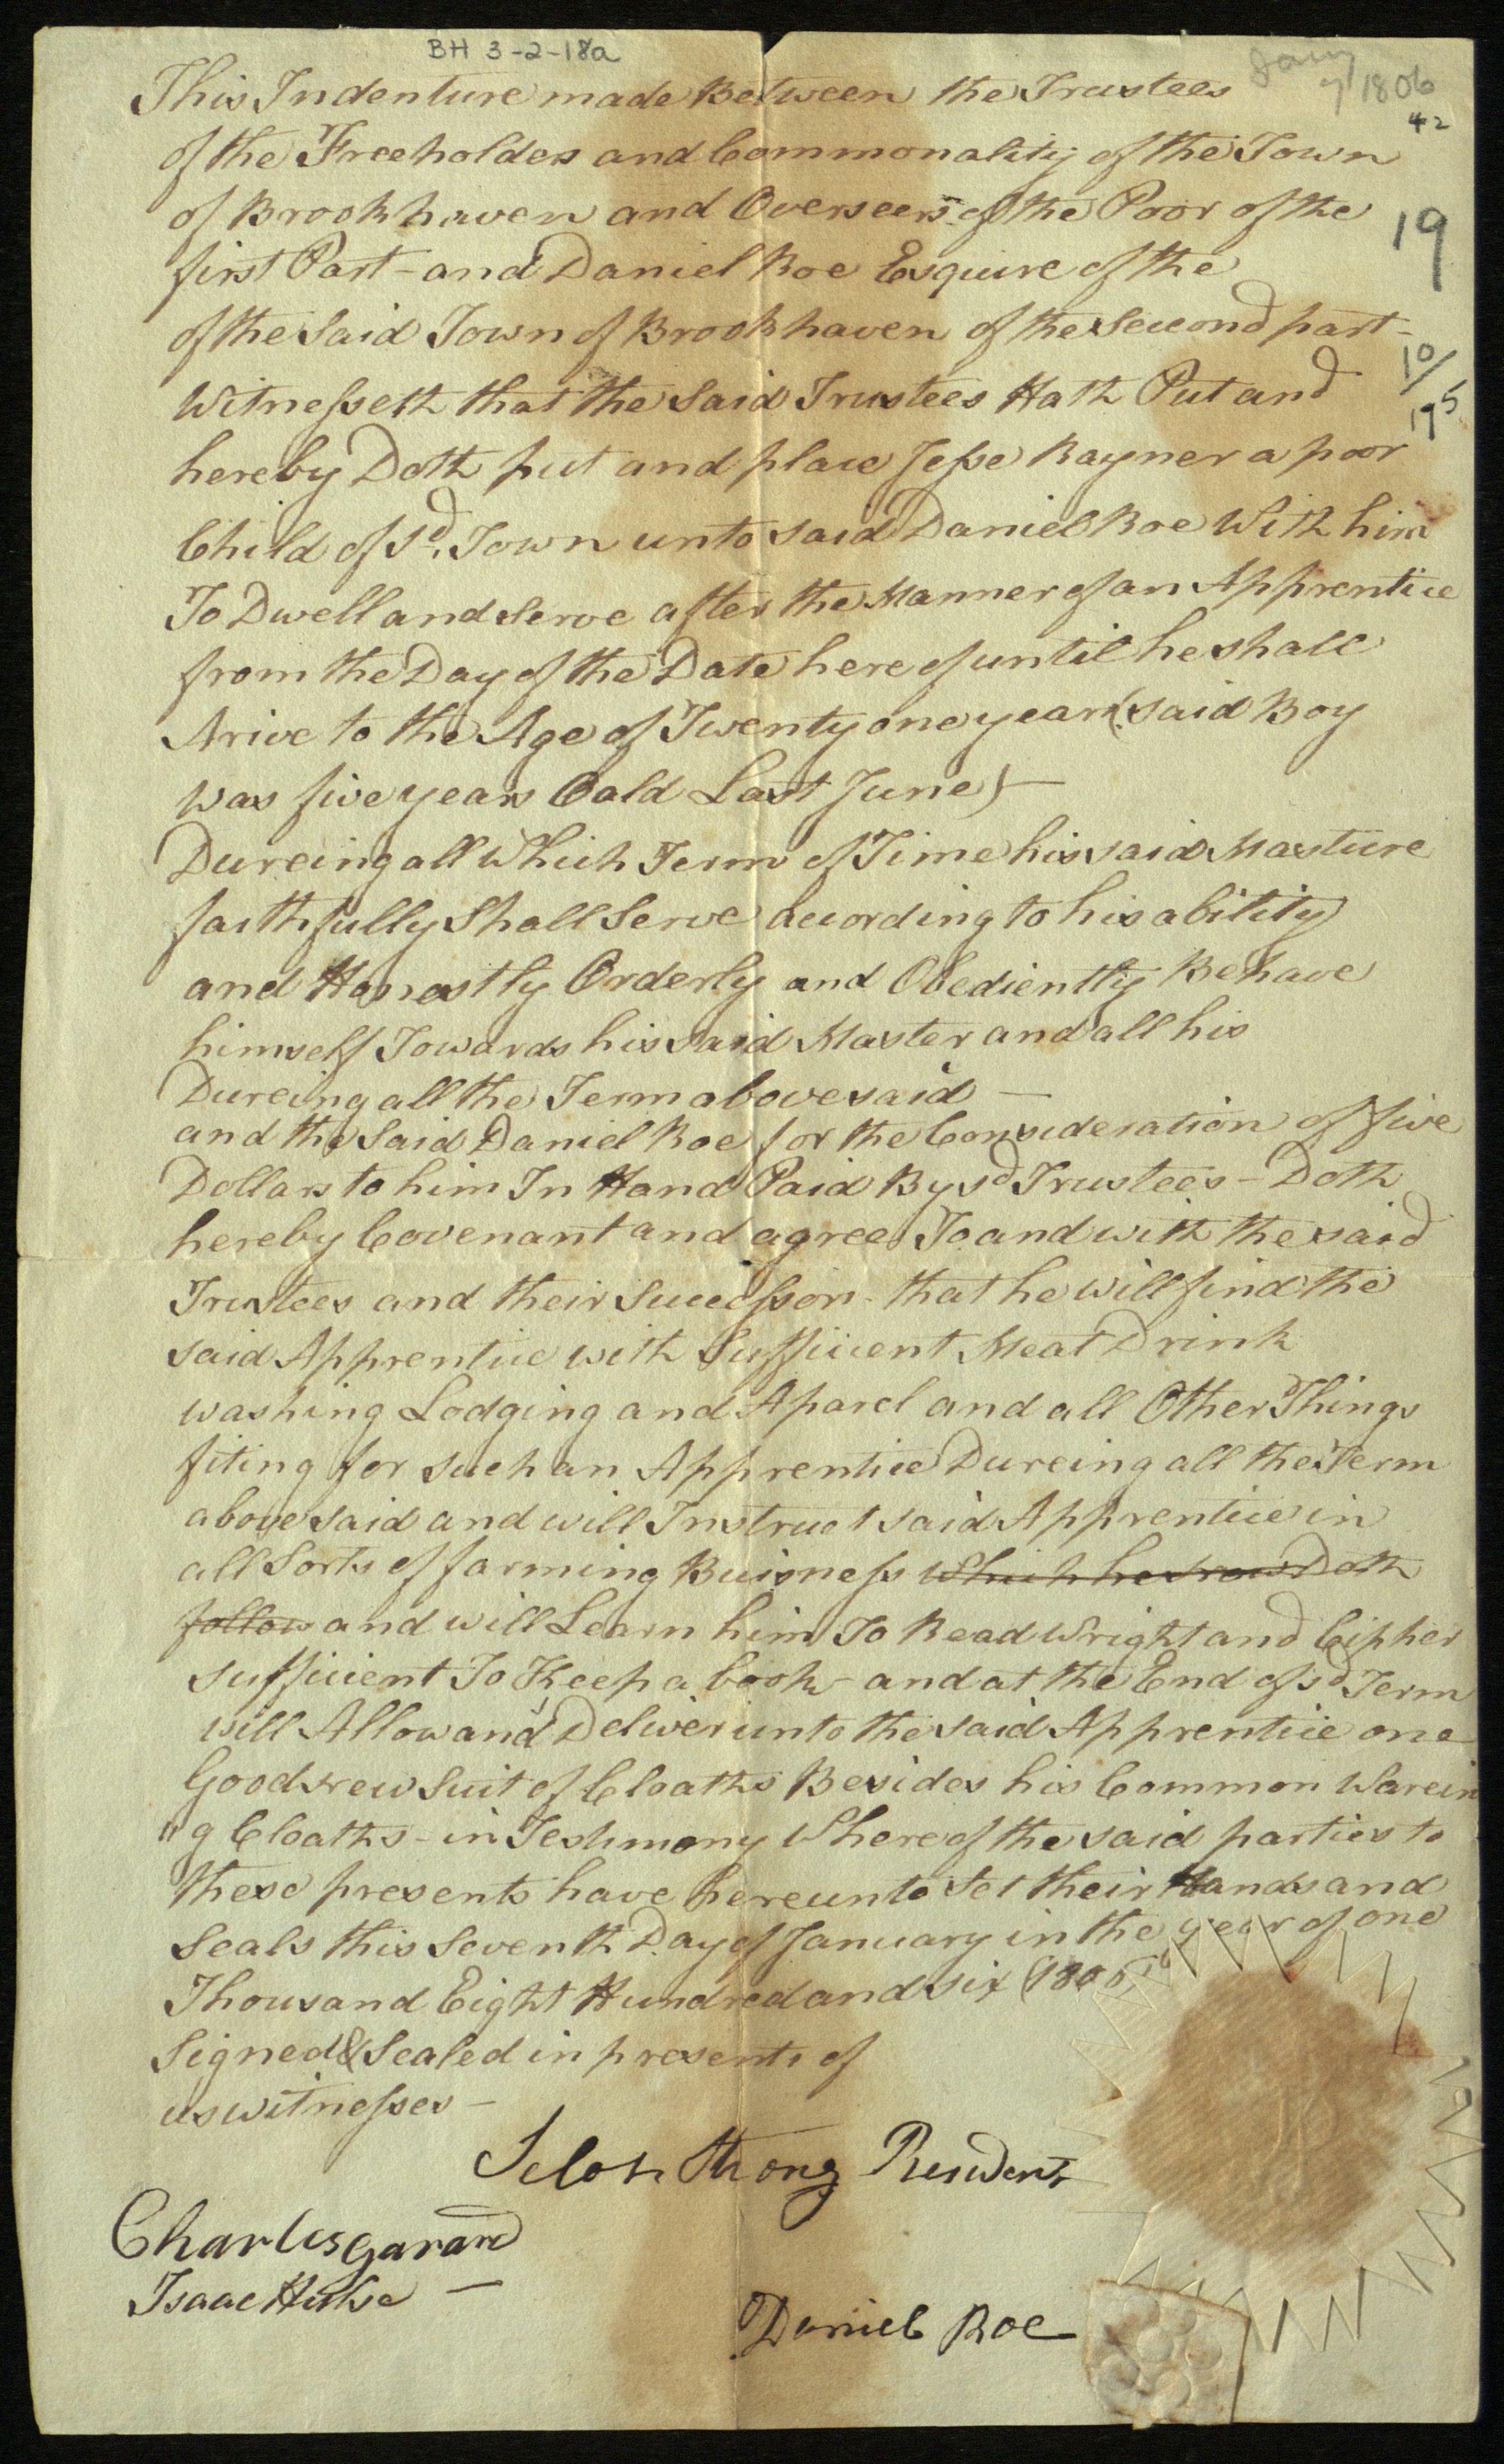 BH 3-2-18a
Jany
7 1806
42
This Indenture made Between the Trustees
of the Freeholders and Commonality of the Town
of Brookhaven and Overseers of the Poor of the
19
first Part - and Daniel Roe Esquire of the
of the Said Town of Brookhaven of the Second part -
10/
175
Witnesseth that the Said Trustees Hath Put and
hereby Doth put and place Jesse Rayner a poor
Child of sd. Town unto said Daniel Roe With him
To Dwell and Serve after the Manner of an Apprentice
from the Day of the Date here of until he shall
Arive to the Age of Twenty one years (said Boy
was five years Oald Last June) -
Dureing all Which Term of Time his said Masture
faithfully Shall Serve According to his ability
and Honestly Orderly and Obediently Behave
himself Towards his said Master and all his
Dureing all the Term above said -
and the Said Daniel Roe for the Consideration of five
Dollars to him In Hand Paid By sd Trustees - Doth
hereby Covenant and agree To and with the said
Trustees and their Successors - that he will find the
said Apprentice with Sufficient Meat Drink
washing Lodging and Aparel and all Other Things
fiting for such an Apprentice Dureing all the Term
above said and will Instruct said Apprentice in
all Sorts of farming Buisness Which he now Doth
follow and will Learn him To Read Wright and Cipher
sufficient To Keep a book - and at the End of sd Term
will Allow and Deliver unto the said Apprentice one
Good new Suit of Cloaths Besides his Common Warein
"g Cloaths - in Testimony Whereof the said parties to
these presents have hereunto Set their Hands and
Seals this Seventh Day of January in the year of one
Thousand Eight Hundred and six (1806)
Signed & Sealed in presents of
us witnesses -
Selah Strong President
Charles Garard
Isaac Hulse -
Daniel Roe